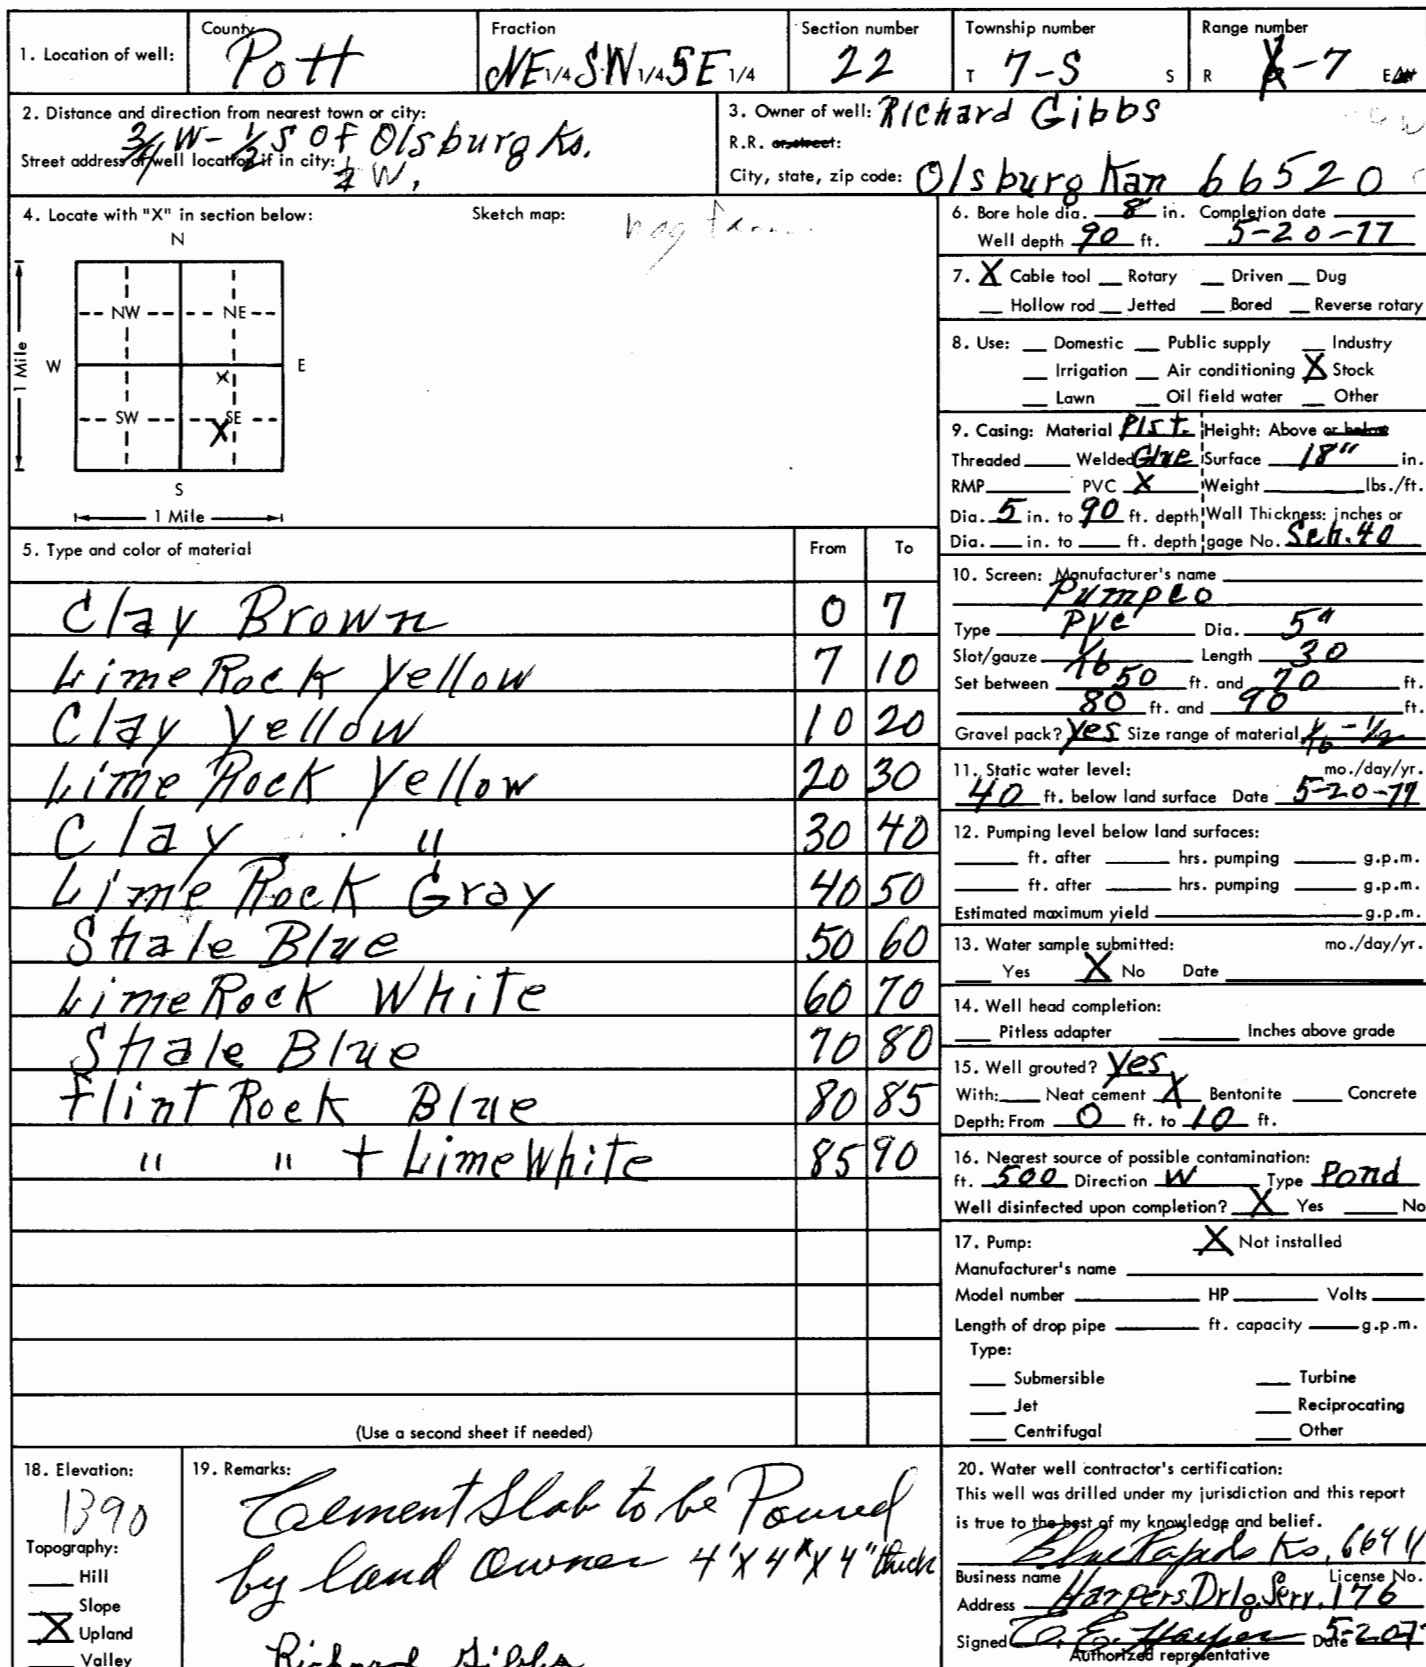 1. Location of well: County Pott Fraction NE 1/4 SW 1/4 SE 1/4 Section number 22 Township number T 7-S S Range number R -7 E
2. Distance and direction from nearest town or city:
3/4 W - 1/2 S of Olsburg Ks.
Street address of well location if in city: 1/4 W,
3. Owner of well: Richard Gibbs
R.R. or street:
City, state, zip code: Olsburg Kan 66520
4. Locate with "X" in section below: Sketch map: hog
N
NW NE
W E
X
SW SE
X
S
1 Mile
1 Mile
5. Type and color of material From To
Clay Brown 0 7
Lime Rock Yellow 7 10
Clay Yellow 10 20
Lime Rock Yellow 20 30
Clay " 30 40
Lime Rock Gray 40 50
Shale Blue 50 60
Lime Rock White 60 70
Shale Blue 70 80
Flint Rock Blue 80 85
" " + Lime White 85 90
(Use a second sheet if needed)
6. Bore hole dia. 8 in. Completion date
Well depth 90 ft. 5-20-77
7. X Cable tool Rotary Driven Dug
Hollow rod Jetted Bored Reverse rotary
8. Use: Domestic Public supply Industry
Irrigation Air conditioning X Stock
Lawn Oil field water Other
9. Casing: Material Plst. Height: Above or below
Threaded Welded Glue Surface 18" in.
RMP PVC X Weight lbs./ft.
Dia. 5 in. to 90 ft. depth Wall Thickness: inches or
Dia. in. to ft. depth gage No. Sch. 40
10. Screen: Manufacturer's name
Pumpco
Type PVC Dia. 5"
Slot/gauze 1/16 Length 30
Set between 50 ft. and 70 ft.
80 ft. and 90 ft.
Gravel pack? Yes Size range of material 1/16 - 1/2
11. Static water level: mo./day/yr.
40 ft. below land surface Date 5-20-77
12. Pumping level below land surfaces:
ft. after hrs. pumping g.p.m.
ft. after hrs. pumping g.p.m.
Estimated maximum yield g.p.m.
13. Water sample submitted: mo./day/yr.
Yes X No Date
14. Well head completion:
Pitless adapter Inches above grade
15. Well grouted? Yes
With: Neat cement X Bentonite Concrete
Depth: From 0 ft. to 10 ft.
16. Nearest source of possible contamination:
ft. 500 Direction W Type Pond
Well disinfected upon completion? X Yes No
17. Pump: X Not installed
Manufacturer's name
Model number HP Volts
Length of drop pipe ft. capacity g.p.m.
Type:
Submersible Turbine
Jet Reciprocating
Centrifugal Other
18. Elevation:
1390
Topography:
Hill
Slope
X Upland
Valley
19. Remarks:
Cement Slab to be Poured
by land Owner 4' X 4' X 4" thick
Richard Gibbs
20. Water well contractor's certification:
This well was drilled under my jurisdiction and this report
is true to the best of my knowledge and belief.
Blue Rapids Ks, 66411
Business name License No.
Address Harpers Drlg. Serv. 176
Signed C. E. Harper Date 5-20-7
Authorized representative